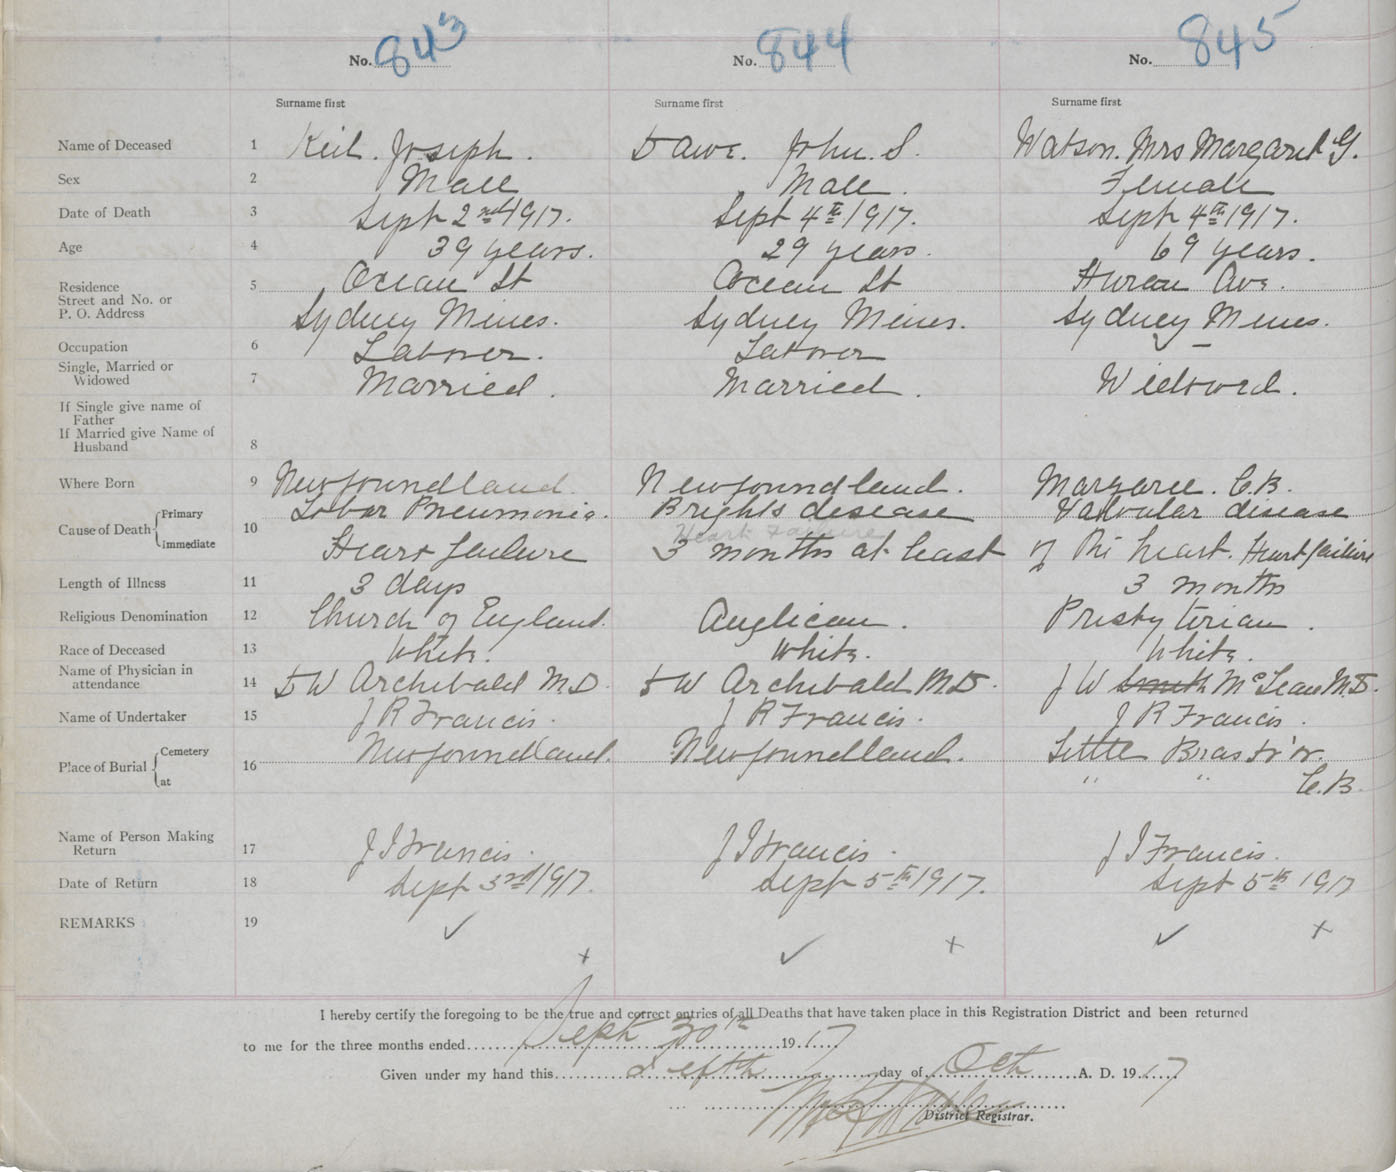 No. 843 No. 844 No. 845
Surname first Surname first Surname first
Name of Deceased 1 Keil. Joseph. Dawe. John. S. Watson. Mrs Margaret G.
Sex 2 Male Male. Female
Date of Death 3 Sept 2nd 1917. Sept 4th 1917. Sept 4th 1917.
Age 4 39 years. 29 years. 69 years.
Residence 5 Ocean St Ocean St Huron Ave.
Street and No. or
P. O. Address Sydney Mines. Sydney Mines. Sydney Mines.
Occupation 6 Laborer. Laborer –
Single, Married or
Widowed 7 Married. Married. Widowed.
If Single give name of
Father
If Married give Name of
Husband 8
Where Born 9 Newfoundland. Newfoundland. Margaree. C.B.
Primary Lobar Pneumonia. Brights disease Valvular disease
Cause of Death 10 Heart Failure
immediate Heart failure 3 months at least of the heart. Heart failure
Length of Illness 11 3 days 3 months
Religious Denomination 12 Church of England. Anglican. Presbyterian.
Race of Deceased 13 White. White. White.
Name of Physician in
attendance 14 W Archibald M.D. W Archibald M.D. J W Smith McLean M.D.
Name of Undertaker 15 J R Francis. J R Francis. J R Francis.
Cemetery Newfoundland. Newfoundland. Little Bras d'or.
Place of Burial 16
at " " C.B.
Name of Person Making
Return 17 J I Francis. J I Francis. J I Francis.
Date of Return 18 Sept 3rd 1917. Sept 5th 1917. Sept 5th 1917
REMARKS 19 ✓ ✓ ✓ +
+ +
I hereby certify the foregoing to be the true and correct entries of all Deaths that have taken place in this Registration District and been returned
to me for the three months ended Sept 30th 1917
Given under my hand this day of Oct A. D. 1917
District Registrar.